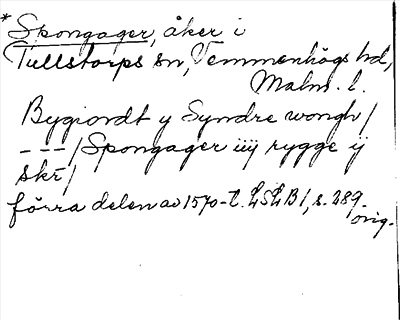 * Spongager, åker i
Tullstorps sn, Vemmenhögs hd,
Malm. l.
Bygiordt y Syndre wongh /
- - - / Spongager iiij rygge ij
skr /
förra delen av 1570-t. LSLB 1, s. 289.
orig.